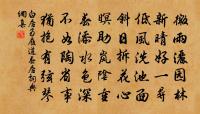 微雨灑園林
新晴好一尋
低風洗池面
斜日拆花心
暝助嵐陰重
春添水色深
不如陶省事
猶抱有弦琴
白居易履道春居詞典
網集